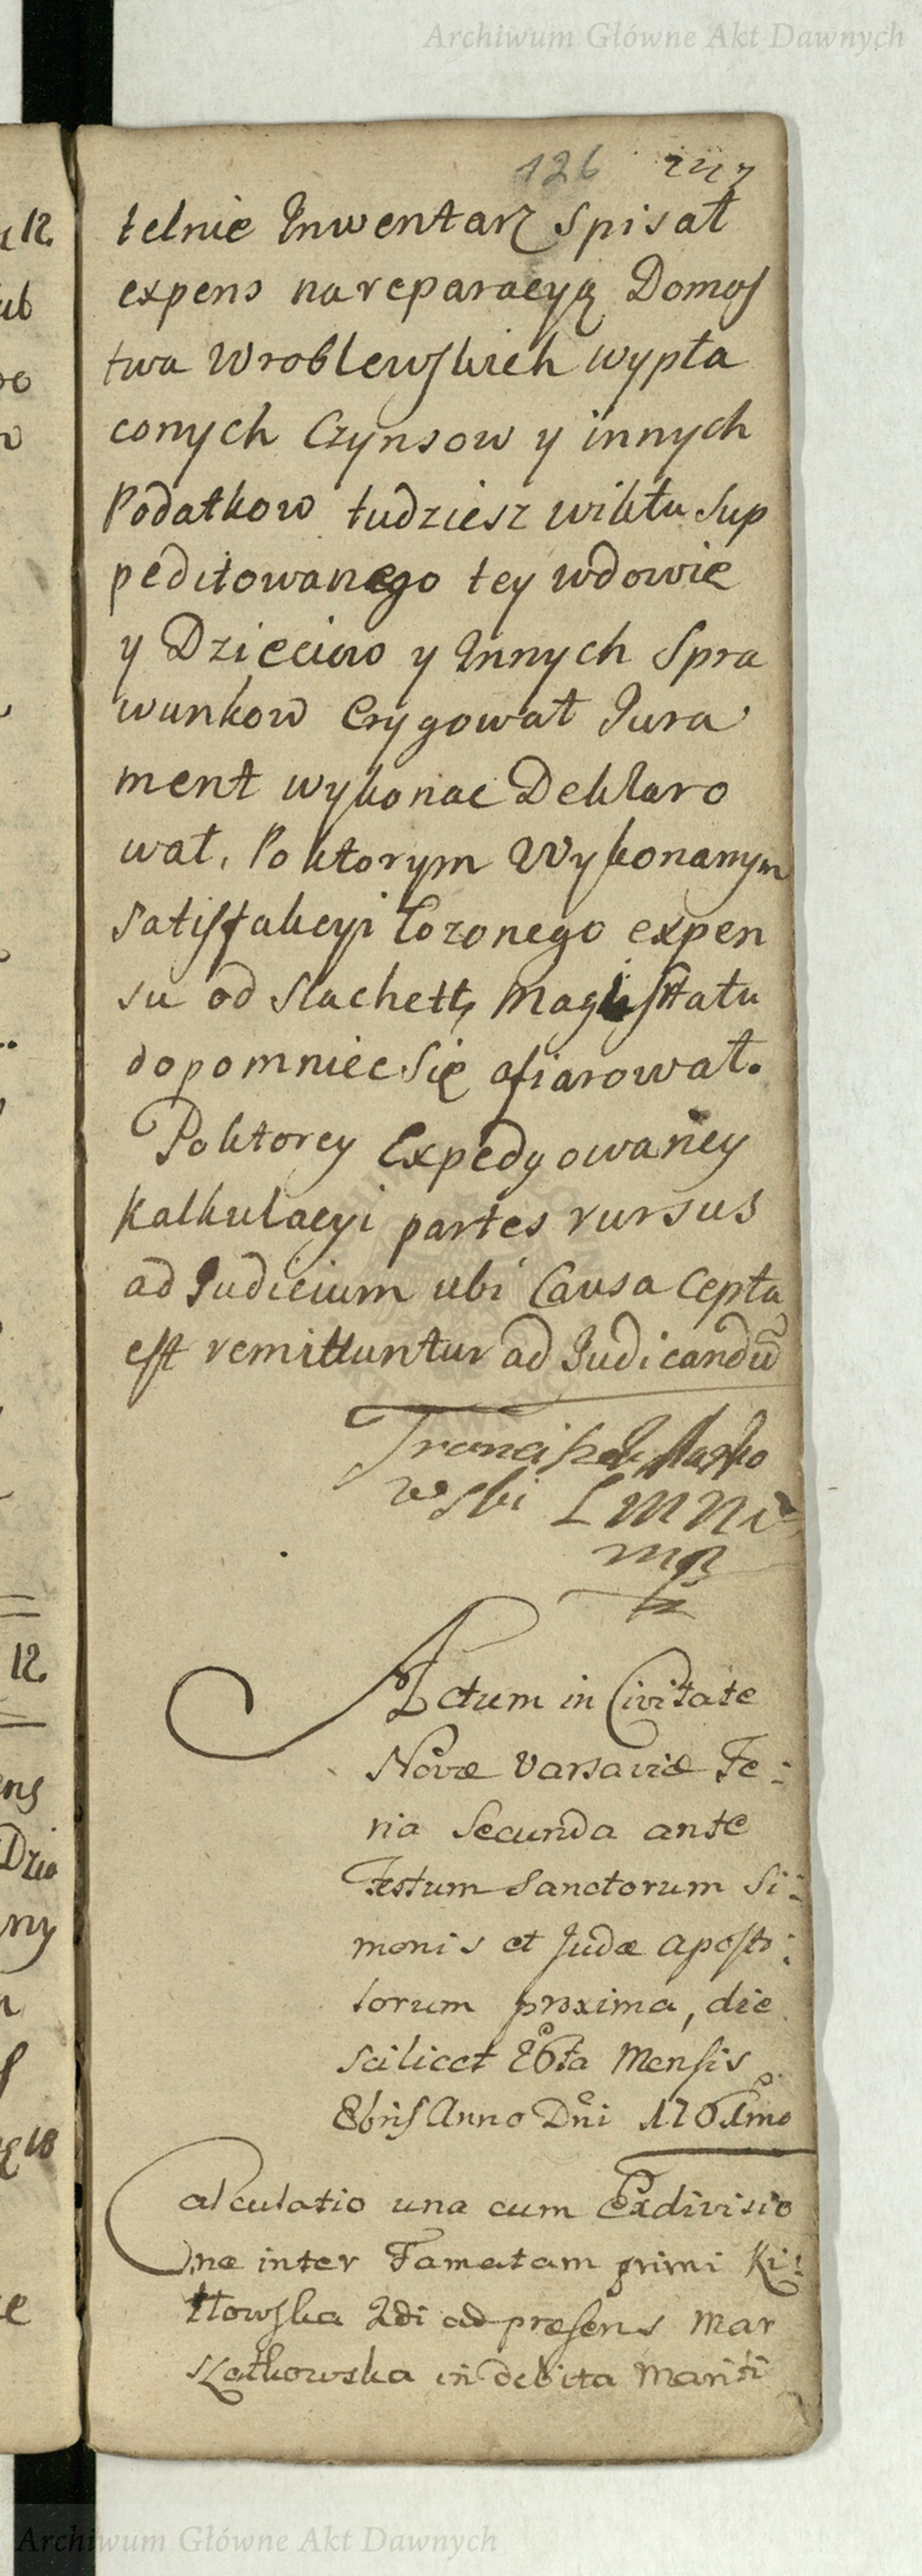 Archiwum Główne Akt Dawnych
126 247
telnie Inwentarz Spisał
expens na reparacyą Domos
twa Wroblewskich wypła
conych Czynsow y innych
Podatkow tudziesz wiktu Sup
peditowanego tey wdowie
y Dzieciom y Innych Spra
wunkow Erygował Jura
ment wykonac Deklaro
wał. Po ktorym Wykonanym
satisfakcyi łozonego expen
su od Slachett, Magistratu
dopomniec Się ofiarował.
Po ktorey Expedyowaney
Kalkulacyi partes rursus
ad Judicium ubi Causa Cepta
est remittuntur ad Judicandū
Franciszek
wski LMNW
mp
Actum in Civitate
Novæ Varsaviæ Fe:
ria Secunda ante
Festum Sanctorum Si:
monis et Judæ Aposto:
lorum proxima, die
scilicet 26ta Mensis
8bris Anno Dni 1761mo
Calculatio una cum Exdivisio
ne inter Famatam primi Ki:
ttowska 2di ad præsens Mar
szałkowska in debita Mariti
12.
ub
12.
ens
Dzie
ny
18
Archiwum Główne Akt Dawnych